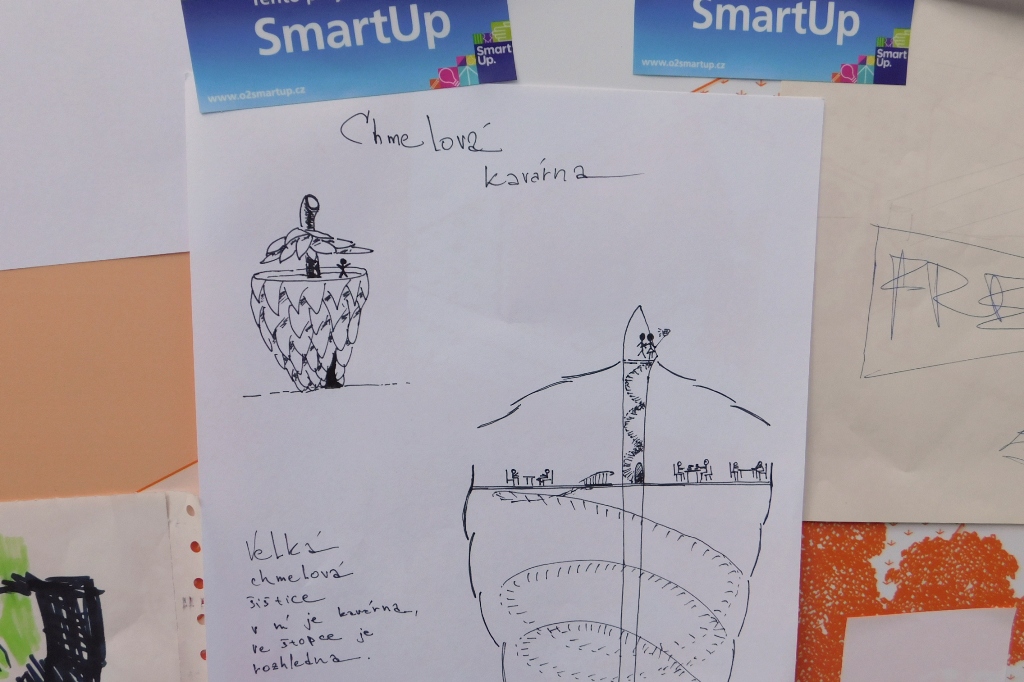 SmartUp
Smart
Up.
www.o2smartup.cz
SmartUp
Smart
Up.
www.o2smartup.cz
Chmelová
kavárna
Velká
chmelová
šištice
v ní je kavárna,
ve stopce je
rozhledna.